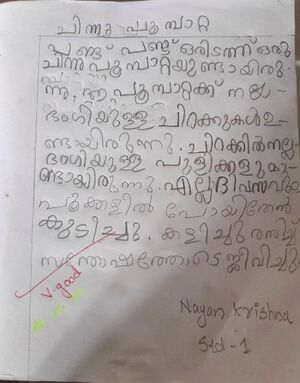 ചിന്നുപൂമ്പാറ്റ
പണ്ട് പണ്ട് ഒരിടത്ത് ഒരു
ചിന്നുപൂമ്പാറ്റയുണ്ടായിരു
ന്നു. ഈ പൂമ്പാറ്റക്ക് നല്ല
ഭംഗിയുള്ള ചിറകുകൾ ഉ
ണ്ടായിരുന്നു. ചിറകിൽ നല്ല
ഭംഗിയുള്ള പുള്ളികളുമു
ണ്ടായിരുന്നു. എല്ലാദിവസവും
പൂക്കളിൽ പോയിതേൻ
കുടിച്ചു. കളിച്ചു രസിച്ചു
സന്തോഷത്തോടെ ജീവിച്ചു
V.good
Nayan Krishna
Std-1